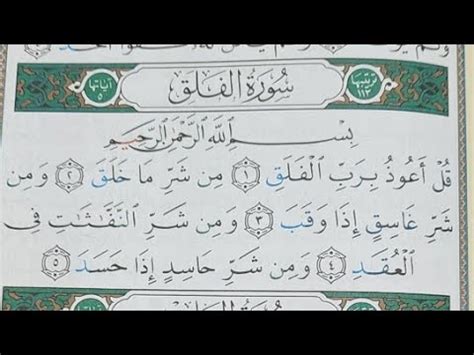 آياتها ٥ سُورَةُ الْفَلَقِ ترتيبها ١١٣
بِسْمِ اللَّهِ الرَّحْمَٰنِ الرَّحِيمِ
قُلْ أَعُوذُ بِرَبِّ الْفَلَقِ ١ مِن شَرِّ مَا خَلَقَ ٢ وَمِن
شَرِّ غَاسِقٍ إِذَا وَقَبَ ٣ وَمِن شَرِّ النَّفَّٰثَٰتِ فِي
الْعُقَدِ ٤ وَمِن شَرِّ حَاسِدٍ إِذَا حَسَدَ ٥